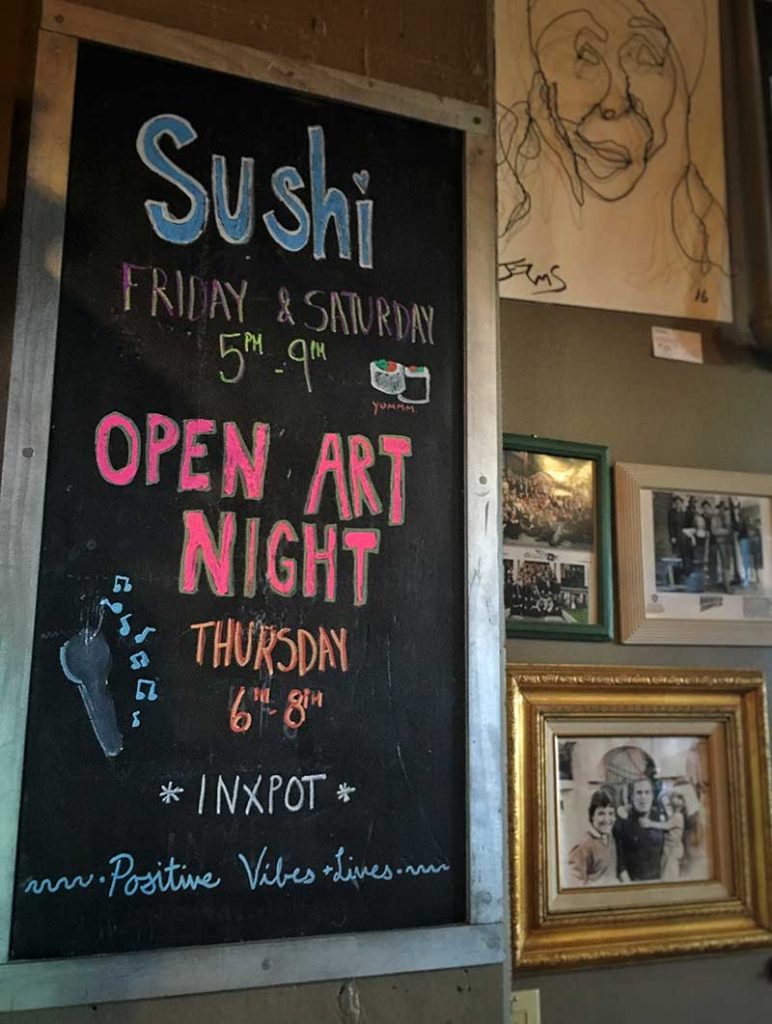 Sushi
FRIDAY & SATURDAY
5PM - 9PM
YUMMM.
OPEN ART
NIGHT
THURSDAY
6PM - 8PM
* INXPOT *
Positive Vibes + Lives
16